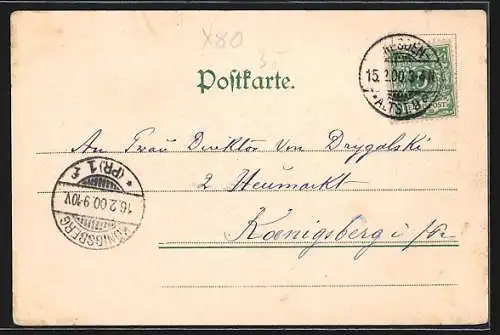 X80
Postkarte.
DRESDEN
15.2.00 3-4N
*ALTST.
An Frau Direktor von Drygalski
2 Neumarkt
Kœnigsberg i/Pr.
KÖNIGSBERG
16.2.00.9-10V
*(PR) 1 f